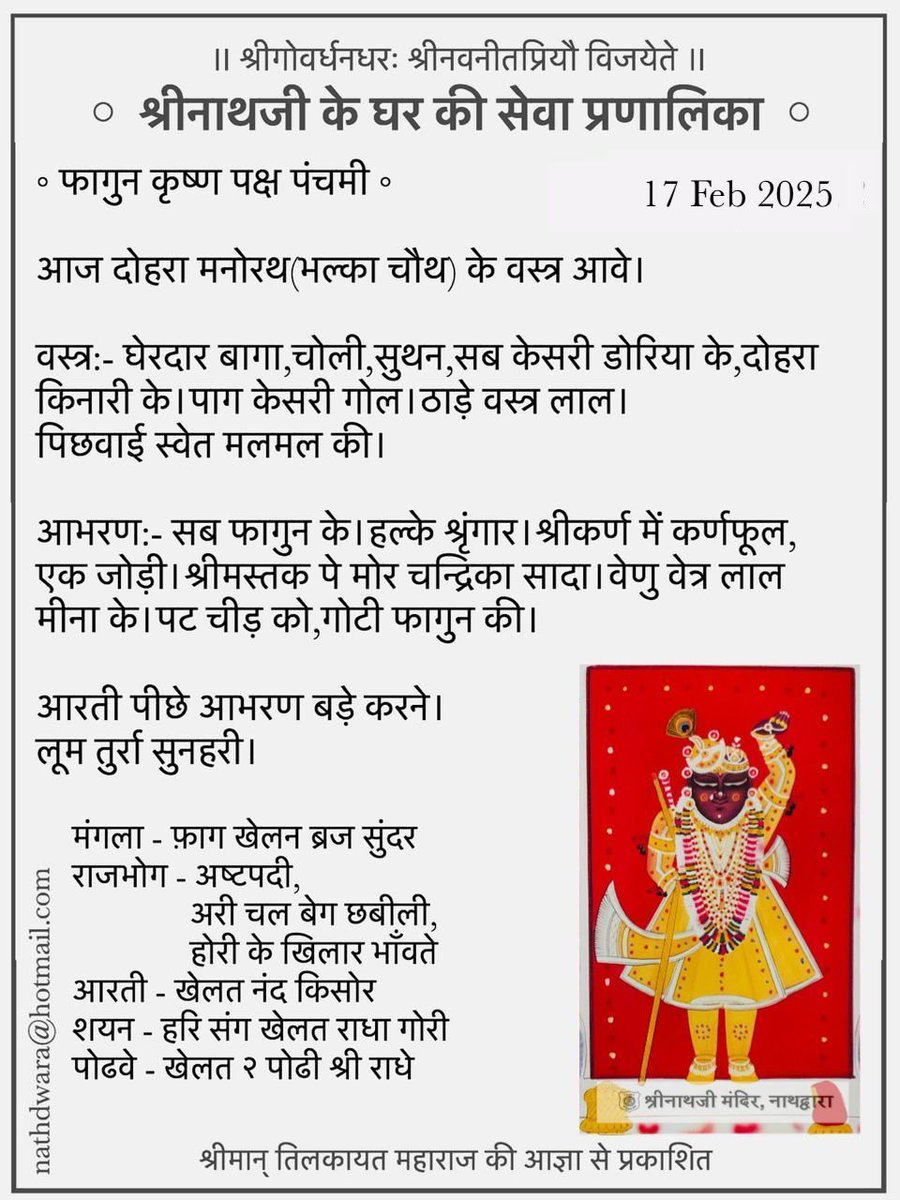 ॥ श्रीगोवर्धनधरः श्रीनवनीतप्रियौ विजयेते ॥
॰ श्रीनाथजी के घर की सेवा प्रणालिका ॰
॰ फागुन कृष्ण पक्ष पंचमी ॰
17 Feb 2025
आज दोहरा मनोरथ(भल्का चौथ) के वस्त्र आवे।
वस्त्र:- घेरदार बागा,चोली,सुथन,सब केसरी डोरिया के,दोहरा
किनारी के।पाग केसरी गोल।ठाड़े वस्त्र लाल।
पिछवाई स्वेत मलमल की।
आभरण:- सब फागुन के।हल्के श्रृंगार।श्रीकर्ण में कर्णफूल,
एक जोड़ी।श्रीमस्तक पे मोर चन्द्रिका सादा।वेणु वेत्र लाल
मीना के।पट चीड़ को,गोटी फागुन की।
आरती पीछे आभरण बड़े करने।
लूम तुर्रा सुनहरी।
मंगला - फ़ाग खेलन ब्रज सुंदर
राजभोग - अष्टपदी,
अरी चल बेग छबीली,
होरी के खिलार भाँवते
आरती - खेलत नंद किसोर
शयन - हरि संग खेलत राधा गोरी
पोढवे - खेलत २ पोढी श्री राधे
nathdwara@hotmail.com
श्रीनाथजी मंदिर, नाथद्वारा
श्रीमान् तिलकायत महाराज की आज्ञा से प्रकाशित